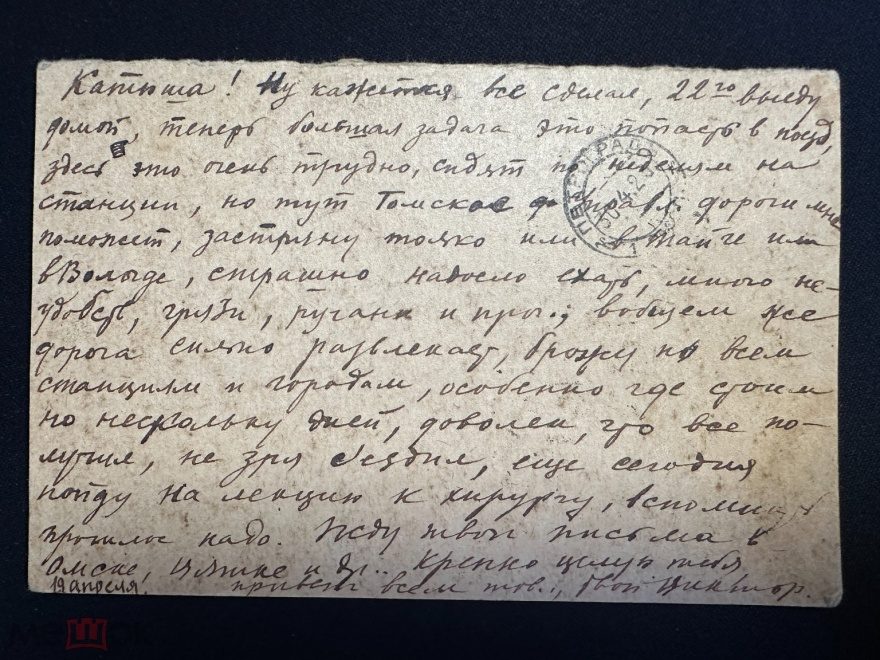 Катюша! Ну кажется все сделал, 22го выеду
домой, теперь большая задача это попасть в поезд,
здесь это очень трудно, сидят по неделям на
станции, но тут Томской дороги мне
поможет, застряну только или в тайге или
в Вологде, страшно надоело ехать, много не-
удобств, грязи, ругани и проч., вобщем же
дорога сильно развлекает, брожу по всем
станциям и городам, особенно где стоим
по нескольку дней, доволен, что все по-
лучил, не зря съездил, еще сегодня
пойду на лекцию к хирургу, вспомнить
прошлое надо. Жду твои письма в
Омске, и др.. Крепко целую тебя
19 апреля. привет всем тов., твой Виктор.
ПЕТРОГРАД
мешок